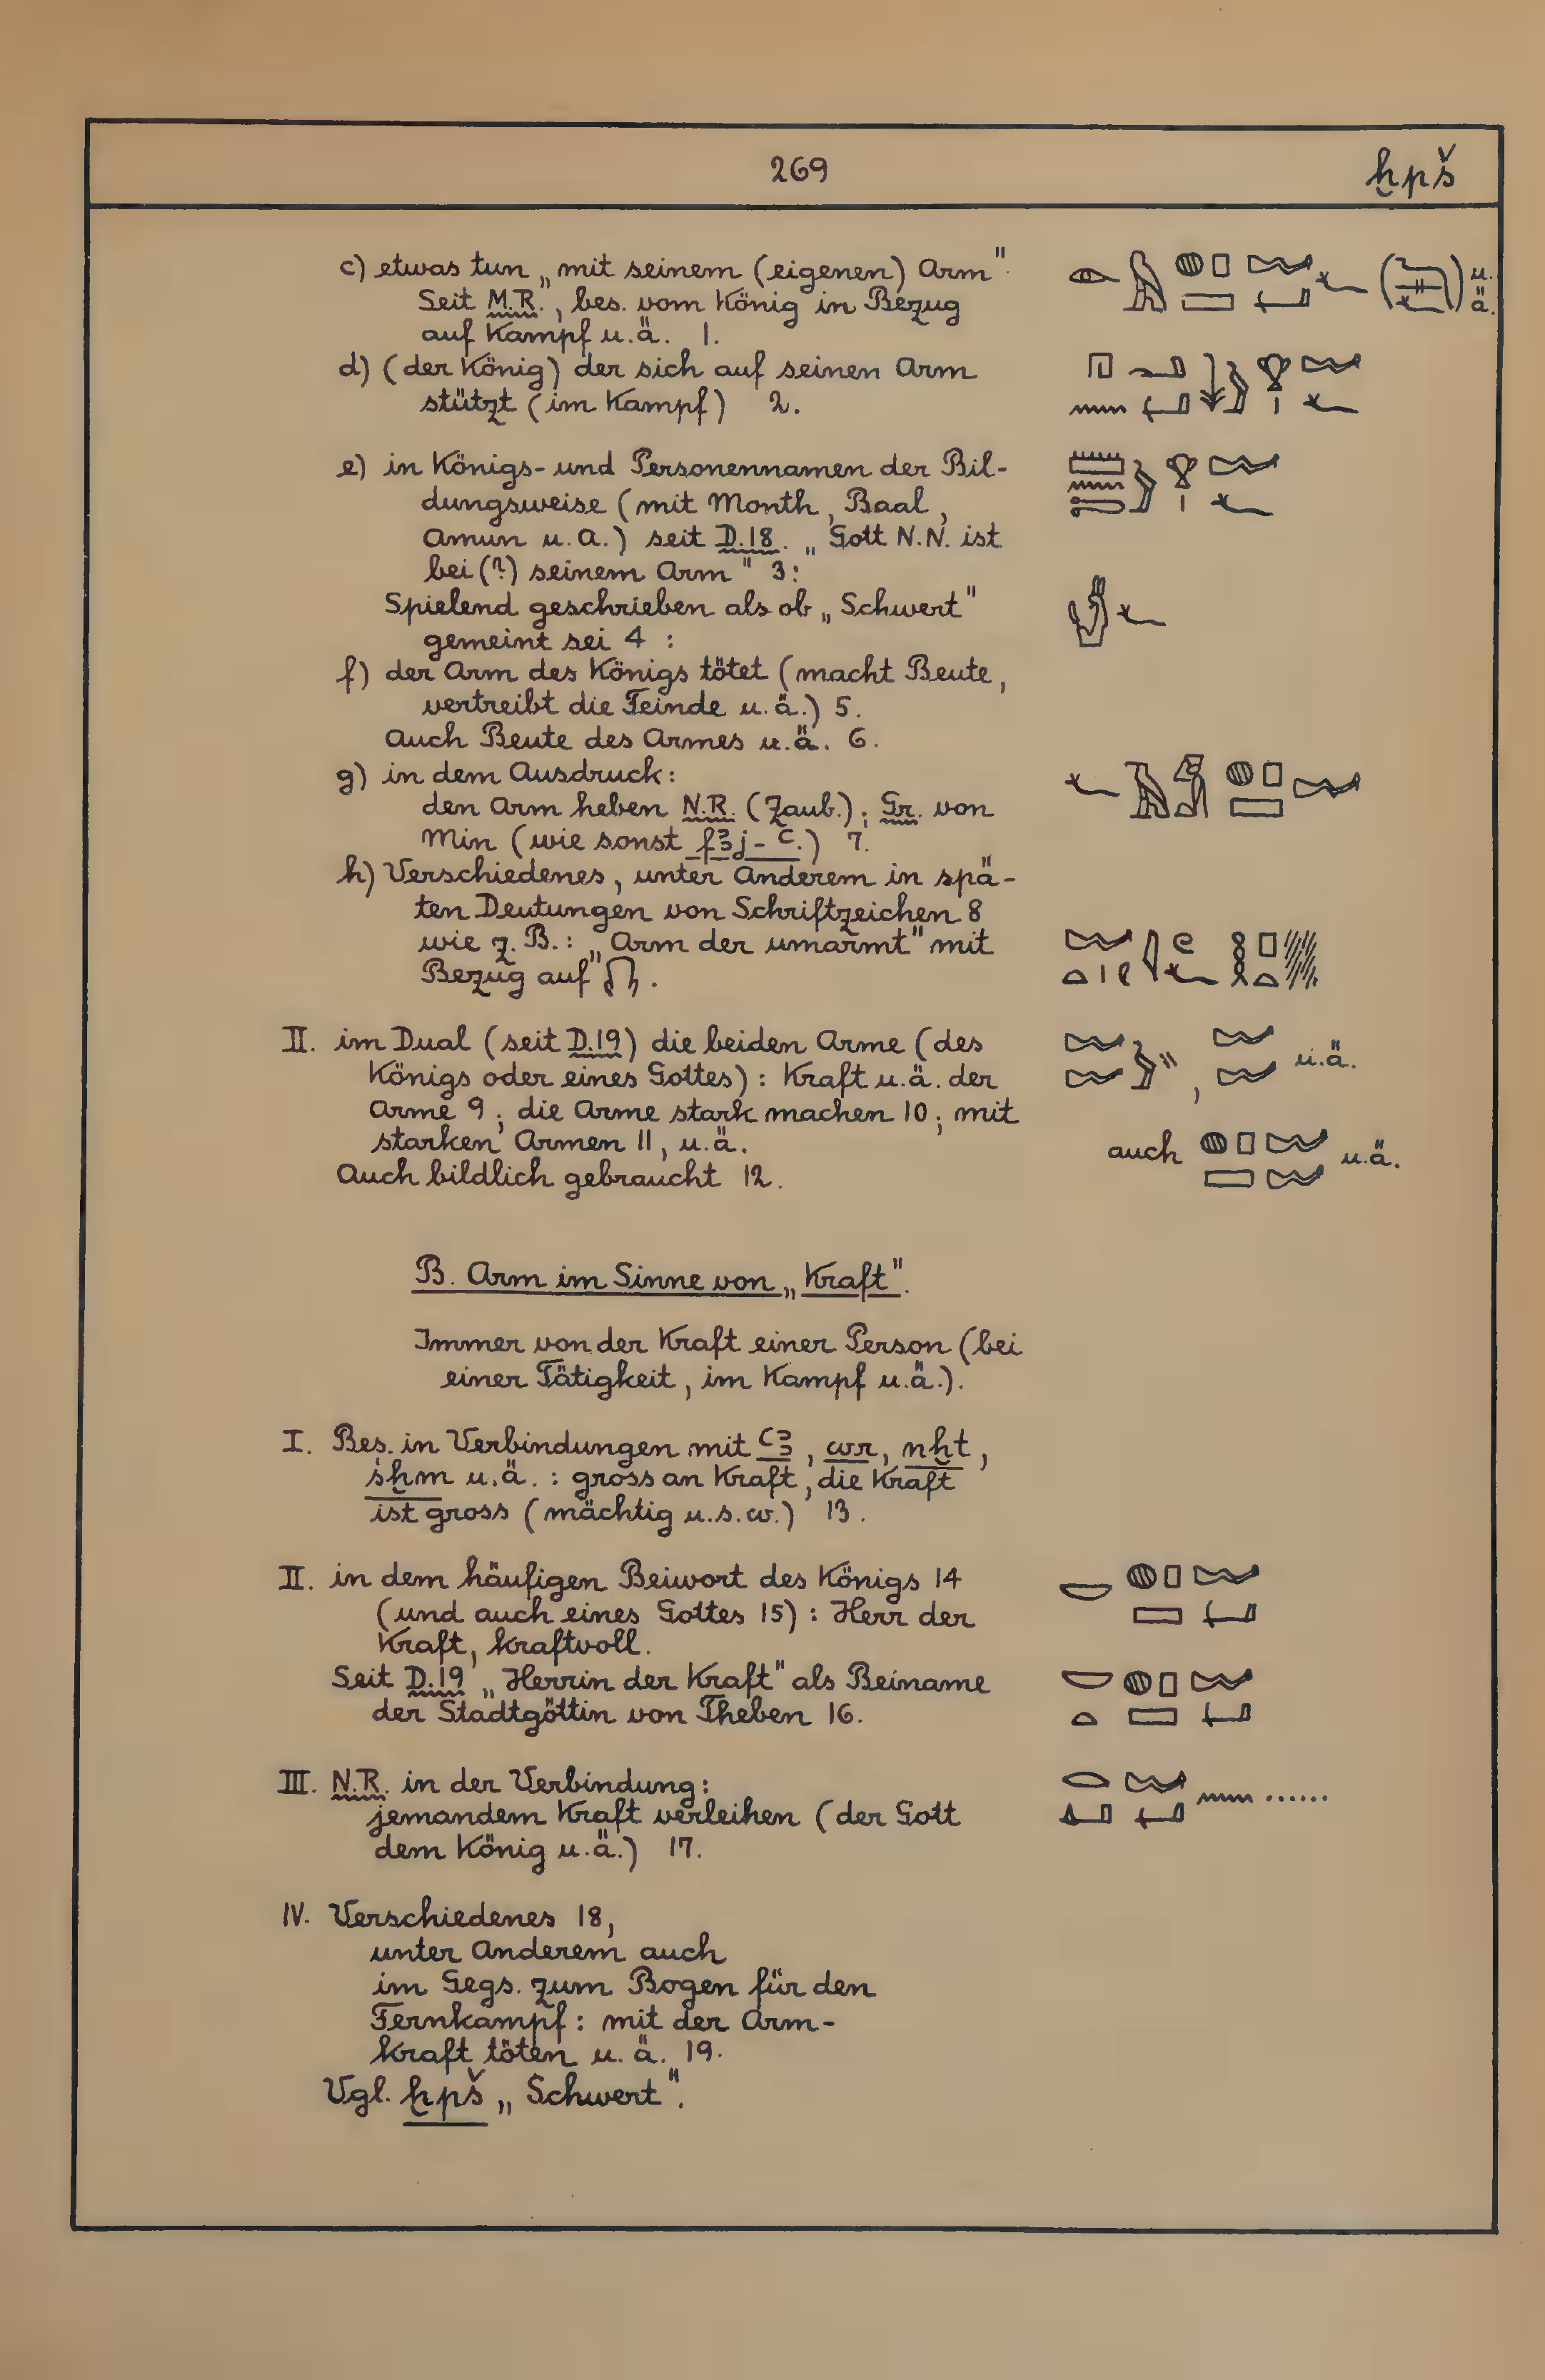 269
ḫpš
c) etwas tun „mit seinem (eigenen) Arm"
Seit M.R., bes. vom König in Bezug
auf Kampf u.ä. 1.
u. ä.
d) (der König) der sich auf seinen Arm
stützt (im Kampf) 2.
e) in Königs- und Personennamen der Bil-
dungsweise (mit Month, Baal,
Amun u. A.) seit D.18. „Gott N.N. ist
bei (?) seinem Arm" 3:
Spielend geschrieben als ob „Schwert"
gemeint sei 4 :
f) der Arm des Königs tötet (macht Beute,
vertreibt die Feinde u.ä.) 5.
Auch Beute des Armes u.ä. 6.
g) in dem Ausdruck:
den Arm heben N.R. (Zaub.); Gr. von
Min (wie sonst fꜣj-ꜥ.) 7.
h) Verschiedenes, unter Anderem in spä-
ten Deutungen von Schriftzeichen 8
wie z. B.: „Arm der umarmt" mit
Bezug auf .
II. im Dual (seit D.19) die beiden Arme (des
Königs oder eines Gottes) : Kraft u.ä. der
Arme 9; die Arme stark machen 10; mit
starken Armen 11, u.ä.
, u.ä.
auch u.ä.
Auch bildlich gebraucht 12.
B. Arm im Sinne von „Kraft".
Immer von der Kraft einer Person (bei
einer Tätigkeit, im Kampf u.ä.).
I. Bes. in Verbindungen mit ꜥꜣ, wr, nḫt,
śḫm u.ä. : gross an Kraft, die Kraft
ist gross (mächtig u.s.w.) 13.
II. in dem häufigen Beiwort des Königs 14
(und auch eines Gottes 15) : Herr der
Kraft, kraftvoll.
Seit D.19 „Herrin der Kraft" als Beiname
der Stadtgöttin von Theben 16.
III. N.R. in der Verbindung:
jemandem Kraft verleihen (der Gott
dem König u.ä.) 17.
......
IV. Verschiedenes 18,
unter Anderem auch
im Gegs. zum Bogen für den
Fernkampf: mit der Arm-
kraft töten u. ä. 19.
Vgl. ḫpš „Schwert".